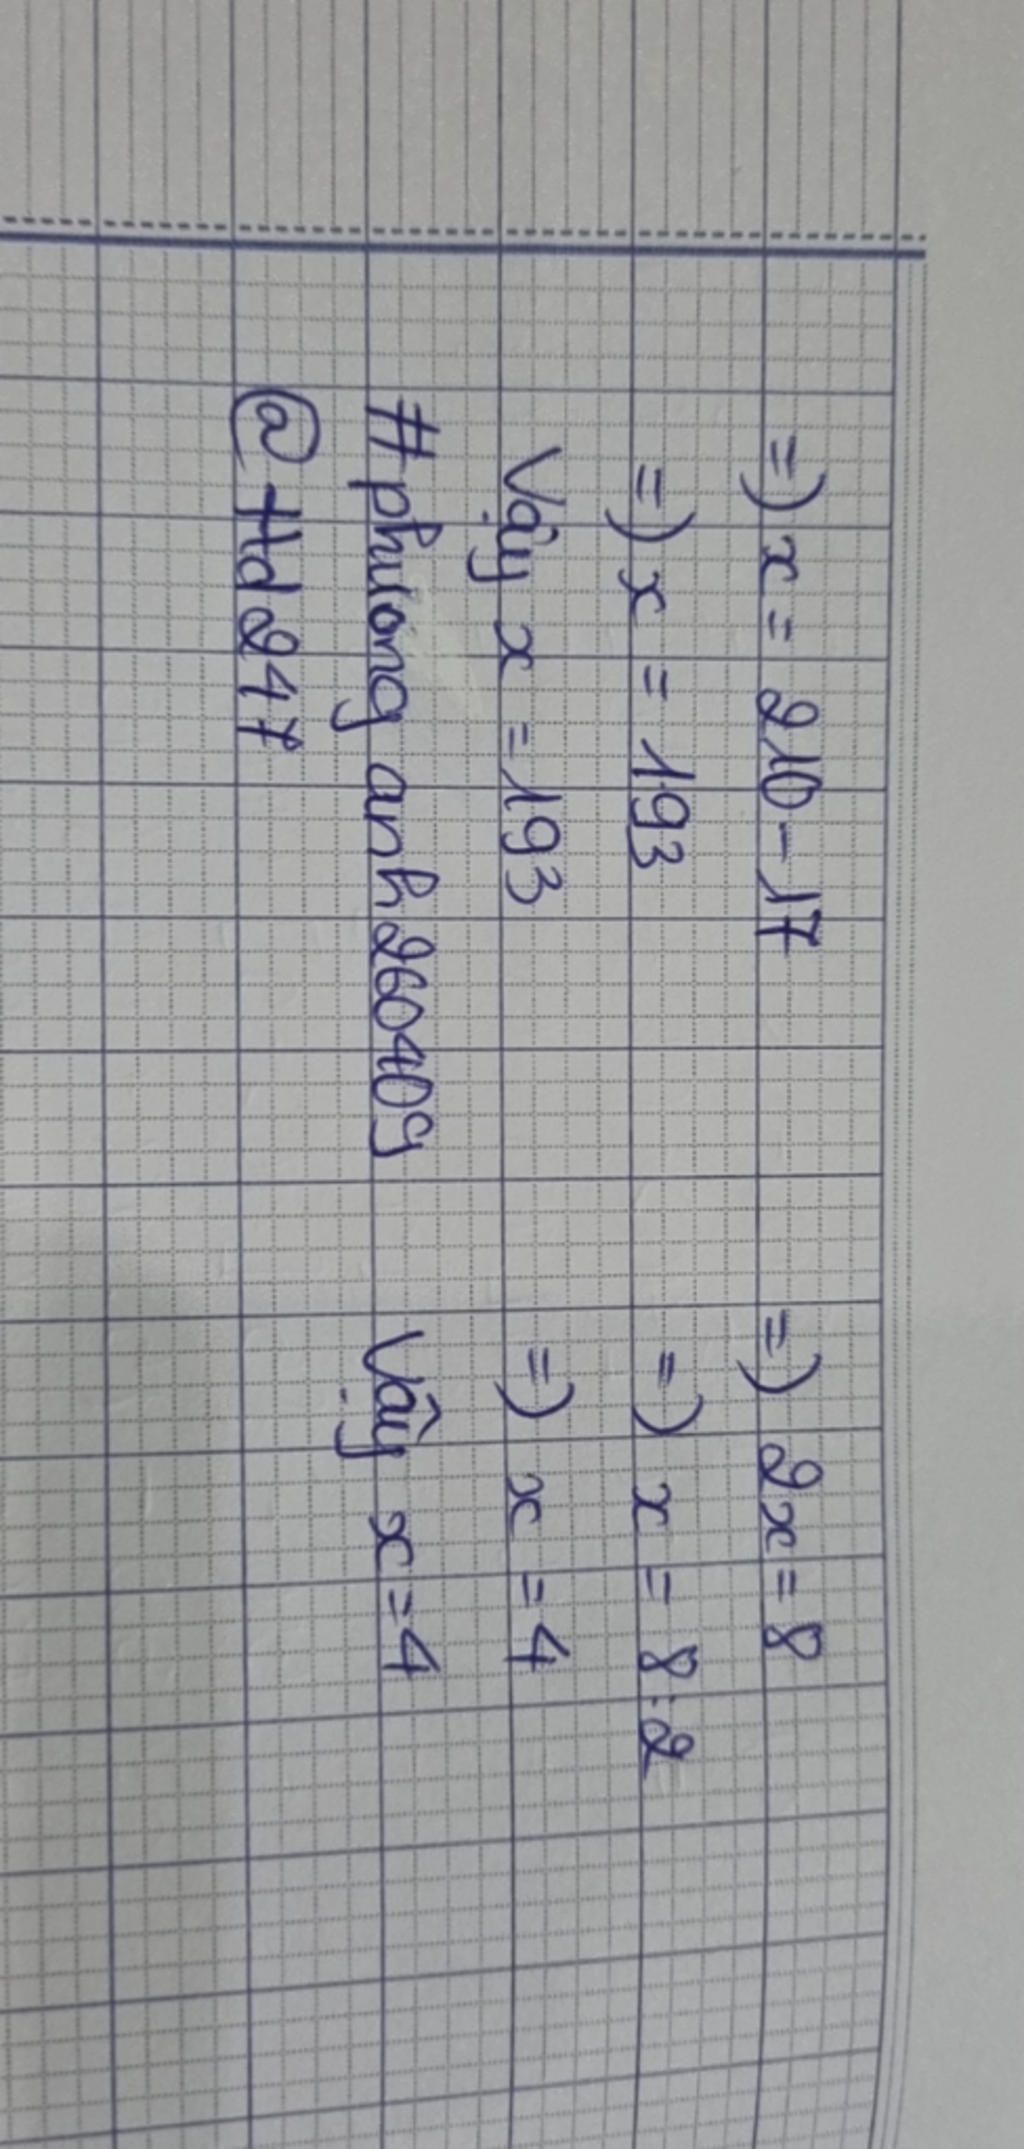 =) x = 210 - 17
=) x = 193
Vậy x = 193
#phuong anh260409
@Hd247
=) 2x = 8
=) x = 8 : 2
=) x = 4
Vậy x = 4